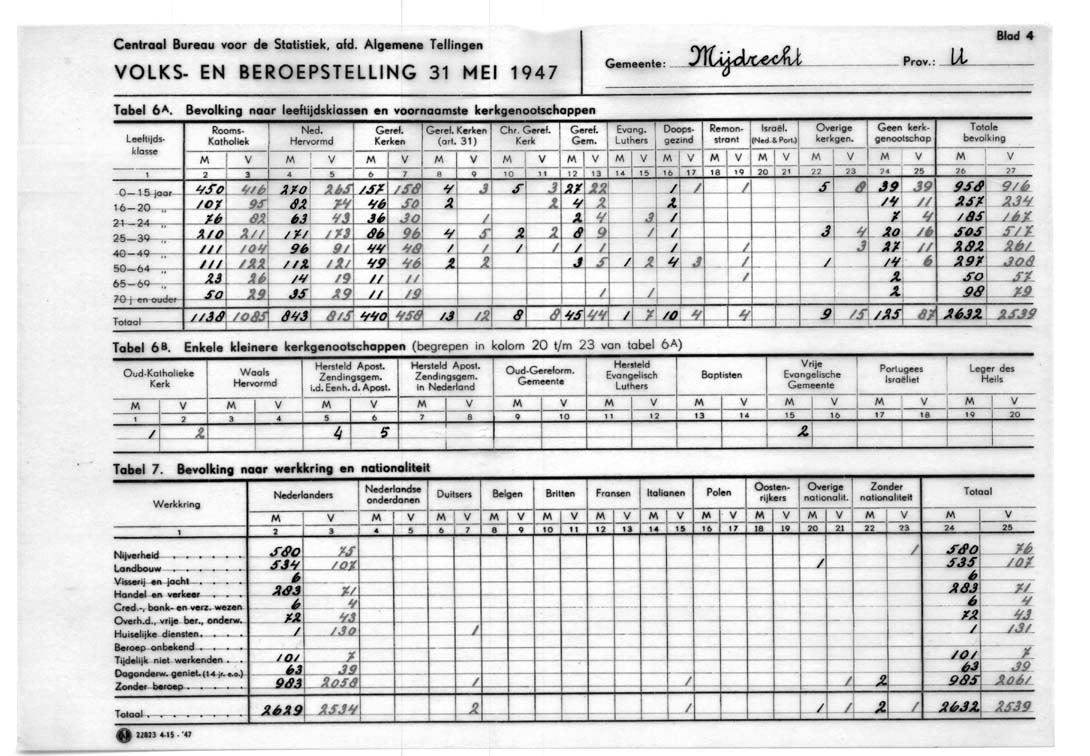 Centraal Bureau voor de Statistiek, afd. Algemene Tellingen
VOLKS- EN BEROEPSTELLING 31 MEI 1947
Gemeente: Mijdrecht Prov.: U
Blad 4
Tabel 6A. Bevolking naar leeftijdsklassen en voornaamste kerkgenootschappen
Leeftijds-klasse Rooms-Katholiek Ned. Hervormd Geref. Kerken Geref. Kerken (art. 31) Chr. Geref. Kerk Geref. Gem. Evang. Luthers Doops-gezind Remon-strant Israël. (Ned. & Port.) Overige kerkgen. Geen kerk-genootschap Totale bevolking
M V M V M V M V M V M V M V M V M V M V M V M V M V
1 2 3 4 5 6 7 8 9 10 11 12 13 14 15 16 17 18 19 20 21 22 23 24 25 26 27
0—15 jaar 450 416 270 265 157 158 4 3 5 3 27 22 1 1 1 5 8 39 39 958 916
16—20 „ 107 95 82 74 46 50 2 2 4 2 2 14 11 257 234
21—24 „ 76 82 63 43 36 30 1 2 4 3 1 7 4 185 167
25—39 „ 210 211 171 173 86 96 4 5 2 2 8 9 1 1 3 4 20 16 505 517
40—49 „ 111 104 96 91 44 48 1 1 1 1 1 1 1 1 3 27 11 282 261
50—64 „ 111 122 112 121 49 46 2 2 3 5 1 2 4 3 1 14 6 297 308
65—69 „ 23 26 14 19 11 11 1 2 50 57
70 j en ouder 50 29 35 29 11 19 1 1 2 98 79
Totaal 1138 1085 843 815 440 458 13 12 8 8 45 44 1 7 10 4 4 9 15 125 87 2632 2539
Tabel 6B. Enkele kleinere kerkgenootschappen (begrepen in kolom 20 t/m 23 van tabel 6A)
Oud-Katholieke Kerk Waals Hervormd Hersteld Apost. Zendingsgem. i.d. Eenh. d. Apost. Hersteld Apost. Zendingsgem. in Nederland Oud-Gereform. Gemeente Hersteld Evangelisch Luthers Baptisten Vrije Evangelische Gemeente Portugees Israëliet Leger des Heils
M V M V M V M V M V M V M V M V M V M V
1 2 3 4 5 6 7 8 9 10 11 12 13 14 15 16 17 18 19 20
1 2 4 5 2
Tabel 7. Bevolking naar werkkring en nationaliteit
Werkkring Nederlanders Nederlandse onderdanen Duitsers Belgen Britten Fransen Italianen Polen Oosten-rijkers Overige nationalit. Zonder nationaliteit Totaal
M V M V M V M V M V M V M V M V M V M V M V M V
1 2 3 4 5 6 7 8 9 10 11 12 13 14 15 16 17 18 19 20 21 22 23 24 25
Nijverheid . . . . . . 580 75 1 580 76
Landbouw . . . . . . 534 107 1 535 107
Visserij en jacht . . . . 6 6
Handel en verkeer . . . 283 71 283 71
Cred.-, bank- en verz. wezen 6 4 6 4
Overh.d., vrije ber., onderw. 72 43 72 43
Huiselijke diensten . . . . 1 130 1 1 131
Beroep onbekend . . . .
Tijdelijk niet werkenden . . 101 7 101 7
Dagonderw. geniet. (14 jr. e.o.) 63 39 63 39
Zonder beroep . . . . . 983 2058 1 1 1 2 985 2061
Totaal . . . . . . . . 2629 2534 2 1 1 1 2 1 2632 2539
22823 4-15 - '47